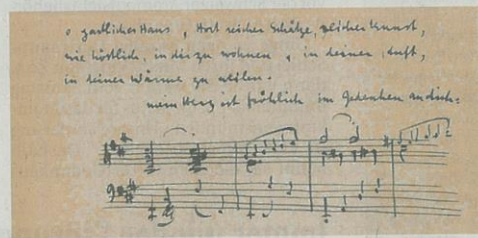 o gastliches Haus, Hort reicher Schätze, etlicher Kunst,
wie köstlich, in dir zu wohnen, in deiner Luft,
in deiner Wärme zu weilen.
mein Herz ist fröhlich im Gedenken an dich: